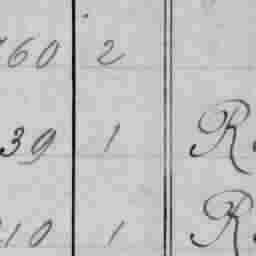 760 2
39 1 R
10 1 R